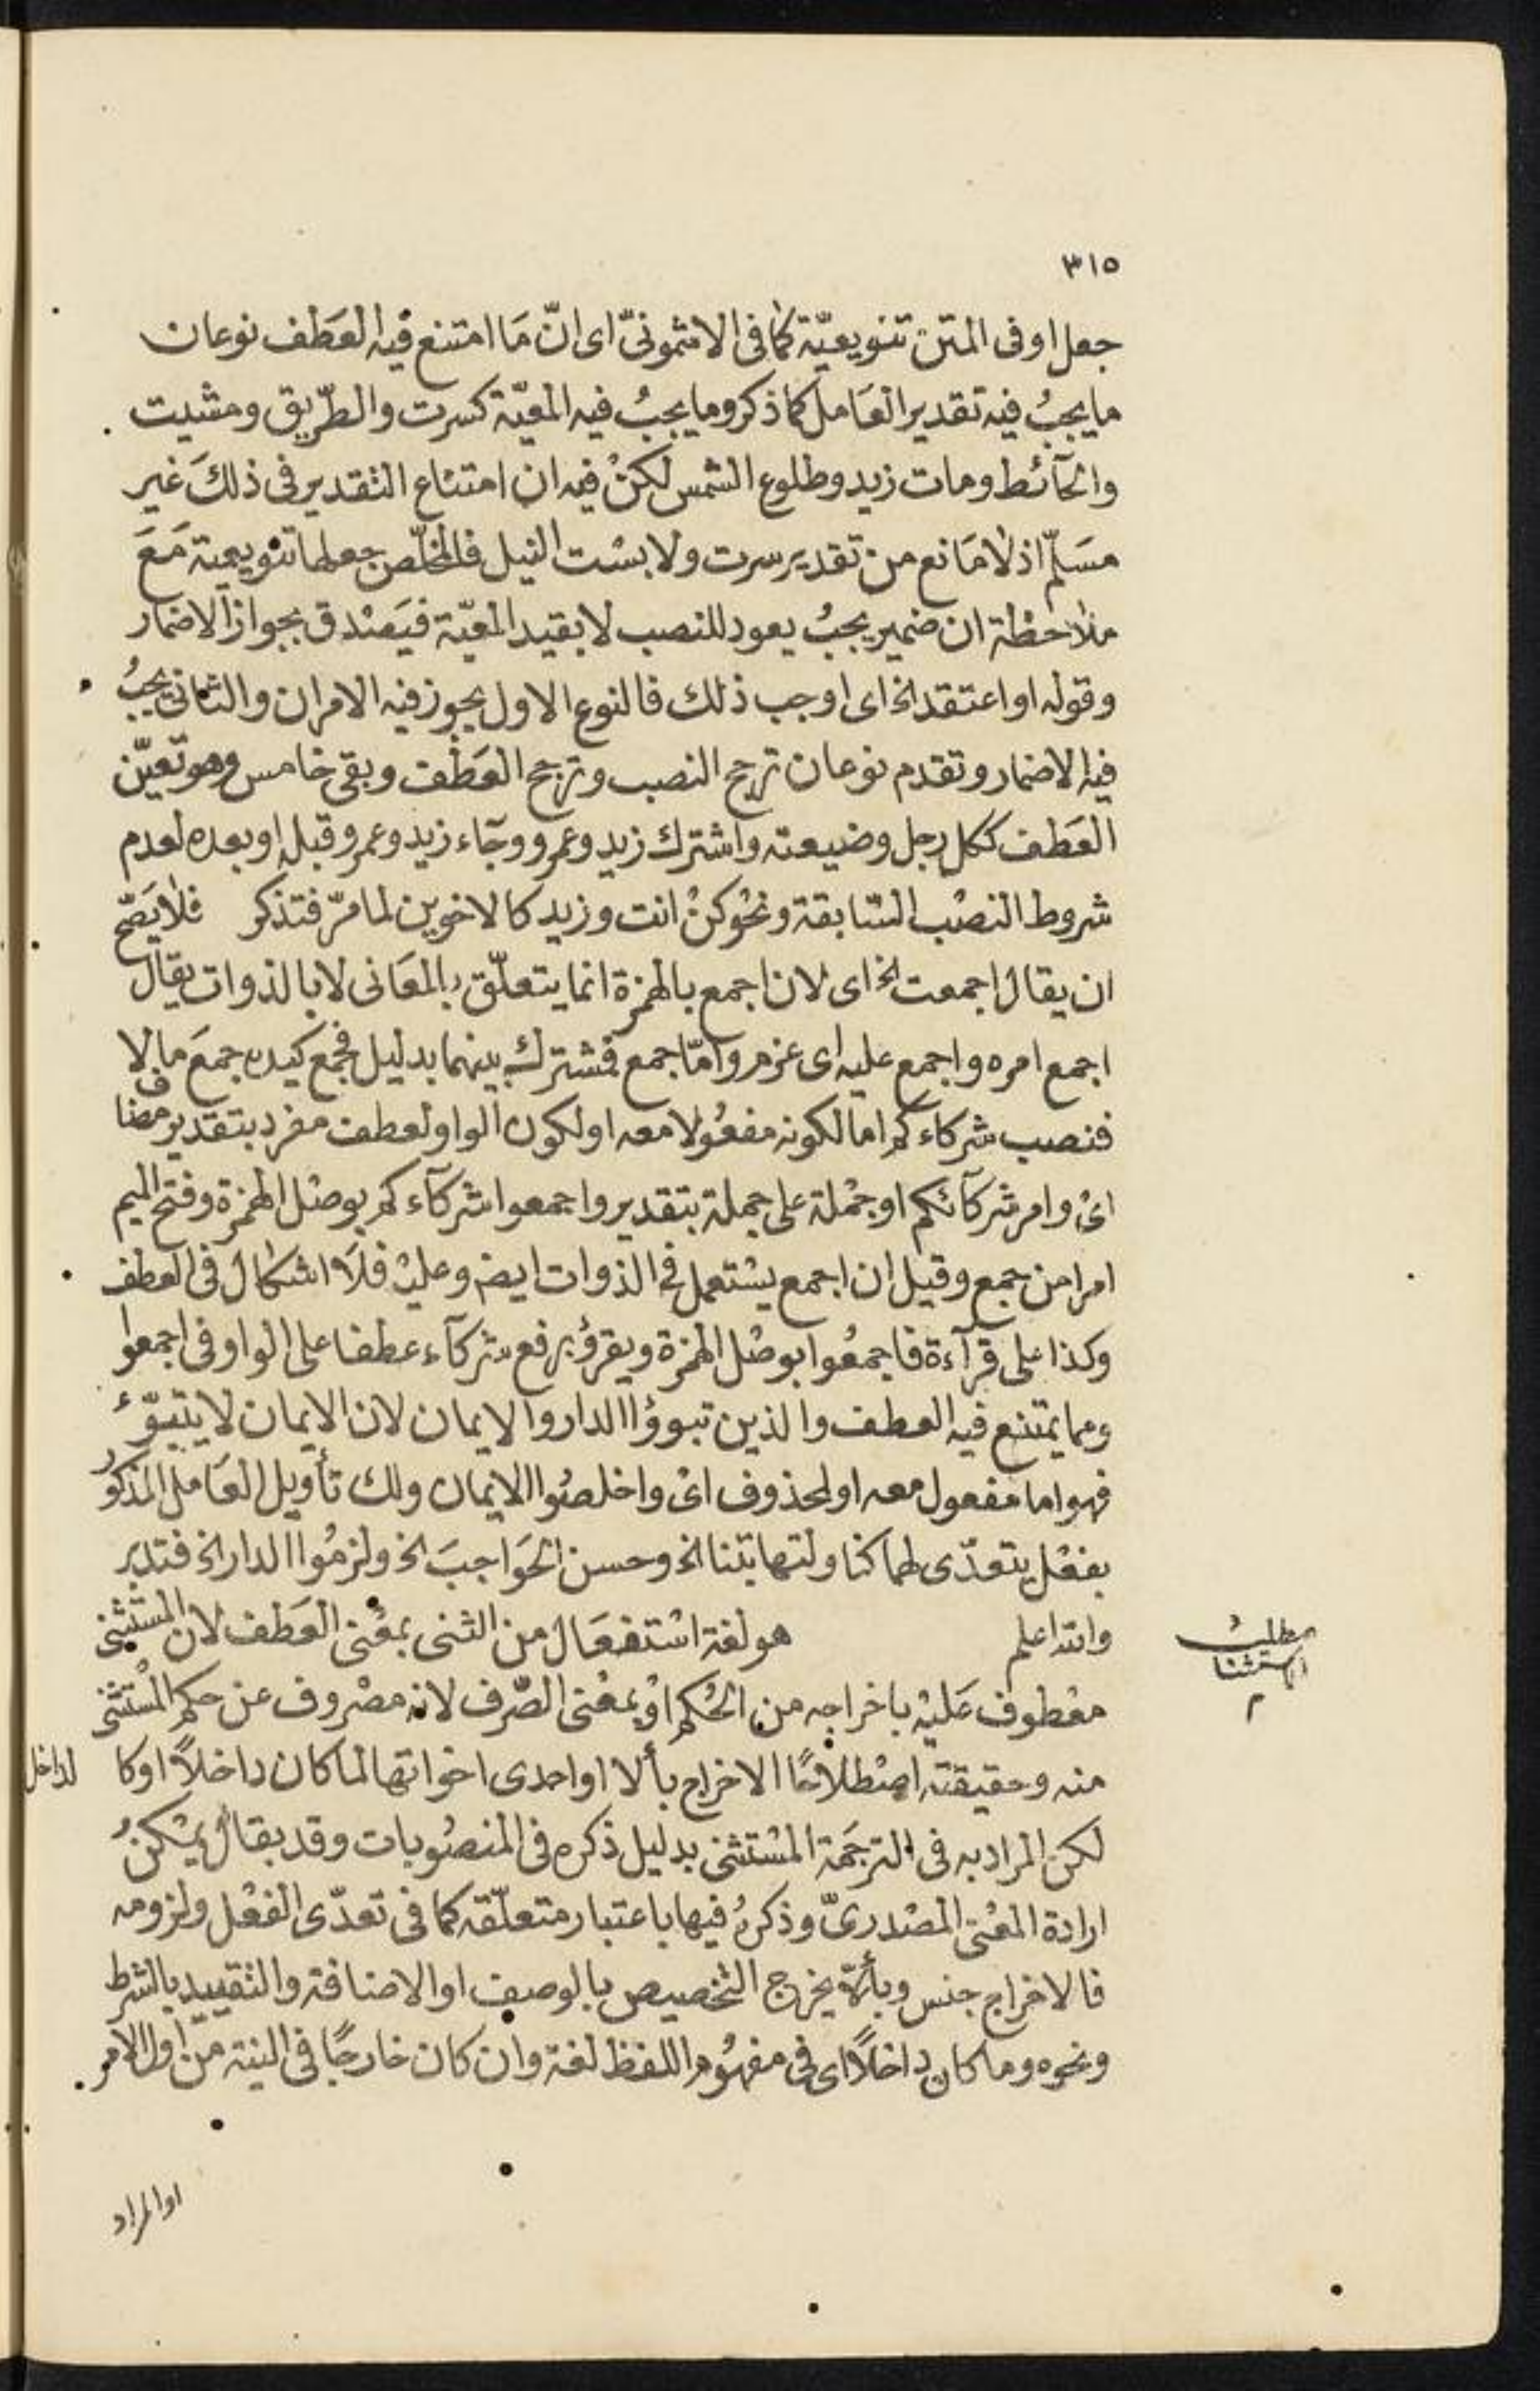 ٣١٥
جعل او فى المتن تنويعيّة كما فى الاشمونىّ اى انّ مَا امتنع فيه العَطف نوعان
ما يجبُ فيه تقدير العَامل كما ذكر وما يجبُ فيه المعيّة كسرت والطّريق ومشيت
والحآئط ومات زيد وطلوع الشمس لكنْ فيه ان امتناع التقدير فى ذلكَ غير
مسَلّم اذ لا مَانع من تقدير سرت ولابسْت النيل فالمخلّص جعلها تنويعية مَعَ
ملاحظة ان ضمير يجبُ يعود للنصب لا بقيد المعيّة فيَصْدق بجواز الاضمار
وقوله او اعتقد الخ اى اوجب ذلك فالنوع الاول يجوز فيه الامران والثانى يجبُ
فيه الاضمار وتقدم نوعان ترجح النصب وترجح العَطْف وبقى خامس وهو تعيّن
العَطف ككل رجل وضيعته واشترك زيد وعمرو وجَآء زيد وعمرو قبله او بعده لعدم
شروط النصْب السّابقة ونحْو كنْ انت وزيد كالاخوين لما مرّ فتذكر فلا يَصّح
ان يقال اجمعت الخ اى لان اجمع بالهمزة انما يتعلّق بالمعَانى لا بالذوات يقال
اجمع امره واجمع عليه اى عزم وامّا جمع فمشترك بينهما بدليل فجمع كيده جمعَ مالا
فنصب شركاءكم اما لكونه مفعُولا معه او لكون الواو لعطف مفرد بتقدير مضاف
اىْ وامر شركآئكم او جمْلة على جملة بتقدير واجمعوا شركآءكم بوصْل الهمزة وفتح الميم
امرا من جمع وقيل ان اجمع يسْتعمل فى الذوات ايضا وعليْه فلا اشكال فى العطف
وكذا على قرآءة فاجمعُوا بوصْل الهمزة ويقرؤ برفع شركآء عطفا على الواو فى اجمعوا
ومما يمتنع فيه العطف والذين تبوؤا الدار والايمان لان الايمان لا يتبوّء
فهو اما مفعول معه او لمحذوف اىْ واخلصُوا الايمان ولك تأويل العَامل المذكور
بفعْل يتعدّى لهما كنا ولتهابتنا الخ وحسن الحَواجبَ الخ ولزمُوا الدار الخ فتدبر
والله اعلم هو لغة اسْتفعَال من الثنى بمعْنى العَطف لان المستثنى
مطلب
الاستثنا
م
معْطوف عَليْه باخراجه من الحُكم اوْ بمعْنى الصّرف لانه مصْروف عن حكم المسْتثنى
منه وحقيقته اصْطلاحًا الاخراج بألا او احدى اخواتها لما كان داخلاً او كا لداخل
لكن المراد به فى الترجَمة المسْتثنى بدليل ذكره فى المنصُوبات وقد يقال يمْكنُ
ارادة المعْنى المصْدرىّ وذكرُه فيها باعتبار متعلّقه كما فى تعدّى الفعْل ولزومه
فالاخراج جنس وبألا يخرج التخصيص بالوصف او الاضافة والتقييد بالشرط
ونحوه وما كان داخلاً اى فى مفهُوم اللفظ لغة وان كان خارجًا فى النية من اول الامر
او المراد